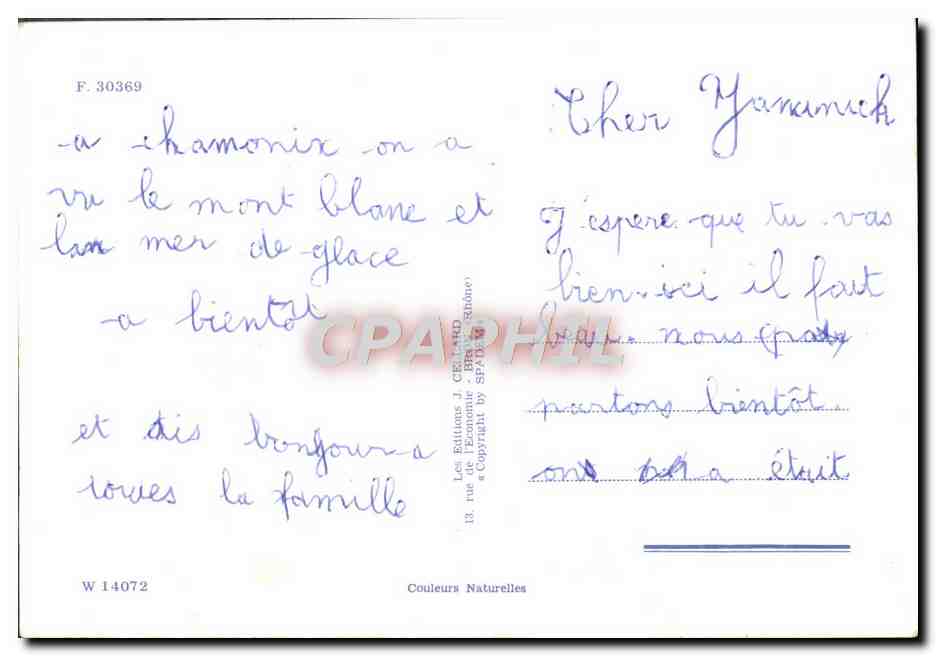 F. 30369
Cher Yannick
J'espere que tu vas
bien. ici il fait
beau. nous
partons bientôt.
on a était
a chamonix on a
vu le mont blanc et
la mer de glace
a bientôt
et dis bonjour a
toutes la famille
Les Editions J. CELLARD
13, rue de l'Economie - BRON (Rhône)
« Copyright by SPADEM »
CPAPHIL
W 14072
Couleurs Naturelles